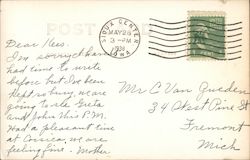 POST CARD
SIOUX CENTER
MAY 26
3 - PM
1938
IOWA
Dear Kees.
I'm sorry havn't
had time to write
before but I've been
kept so busy. we are
going to see Greta
and John this P.M.
Had a pleasant time
at Corsica, we are
feeling fine. Mother
Mr C Van Queden
34 West Pine St
Fremont
Mich